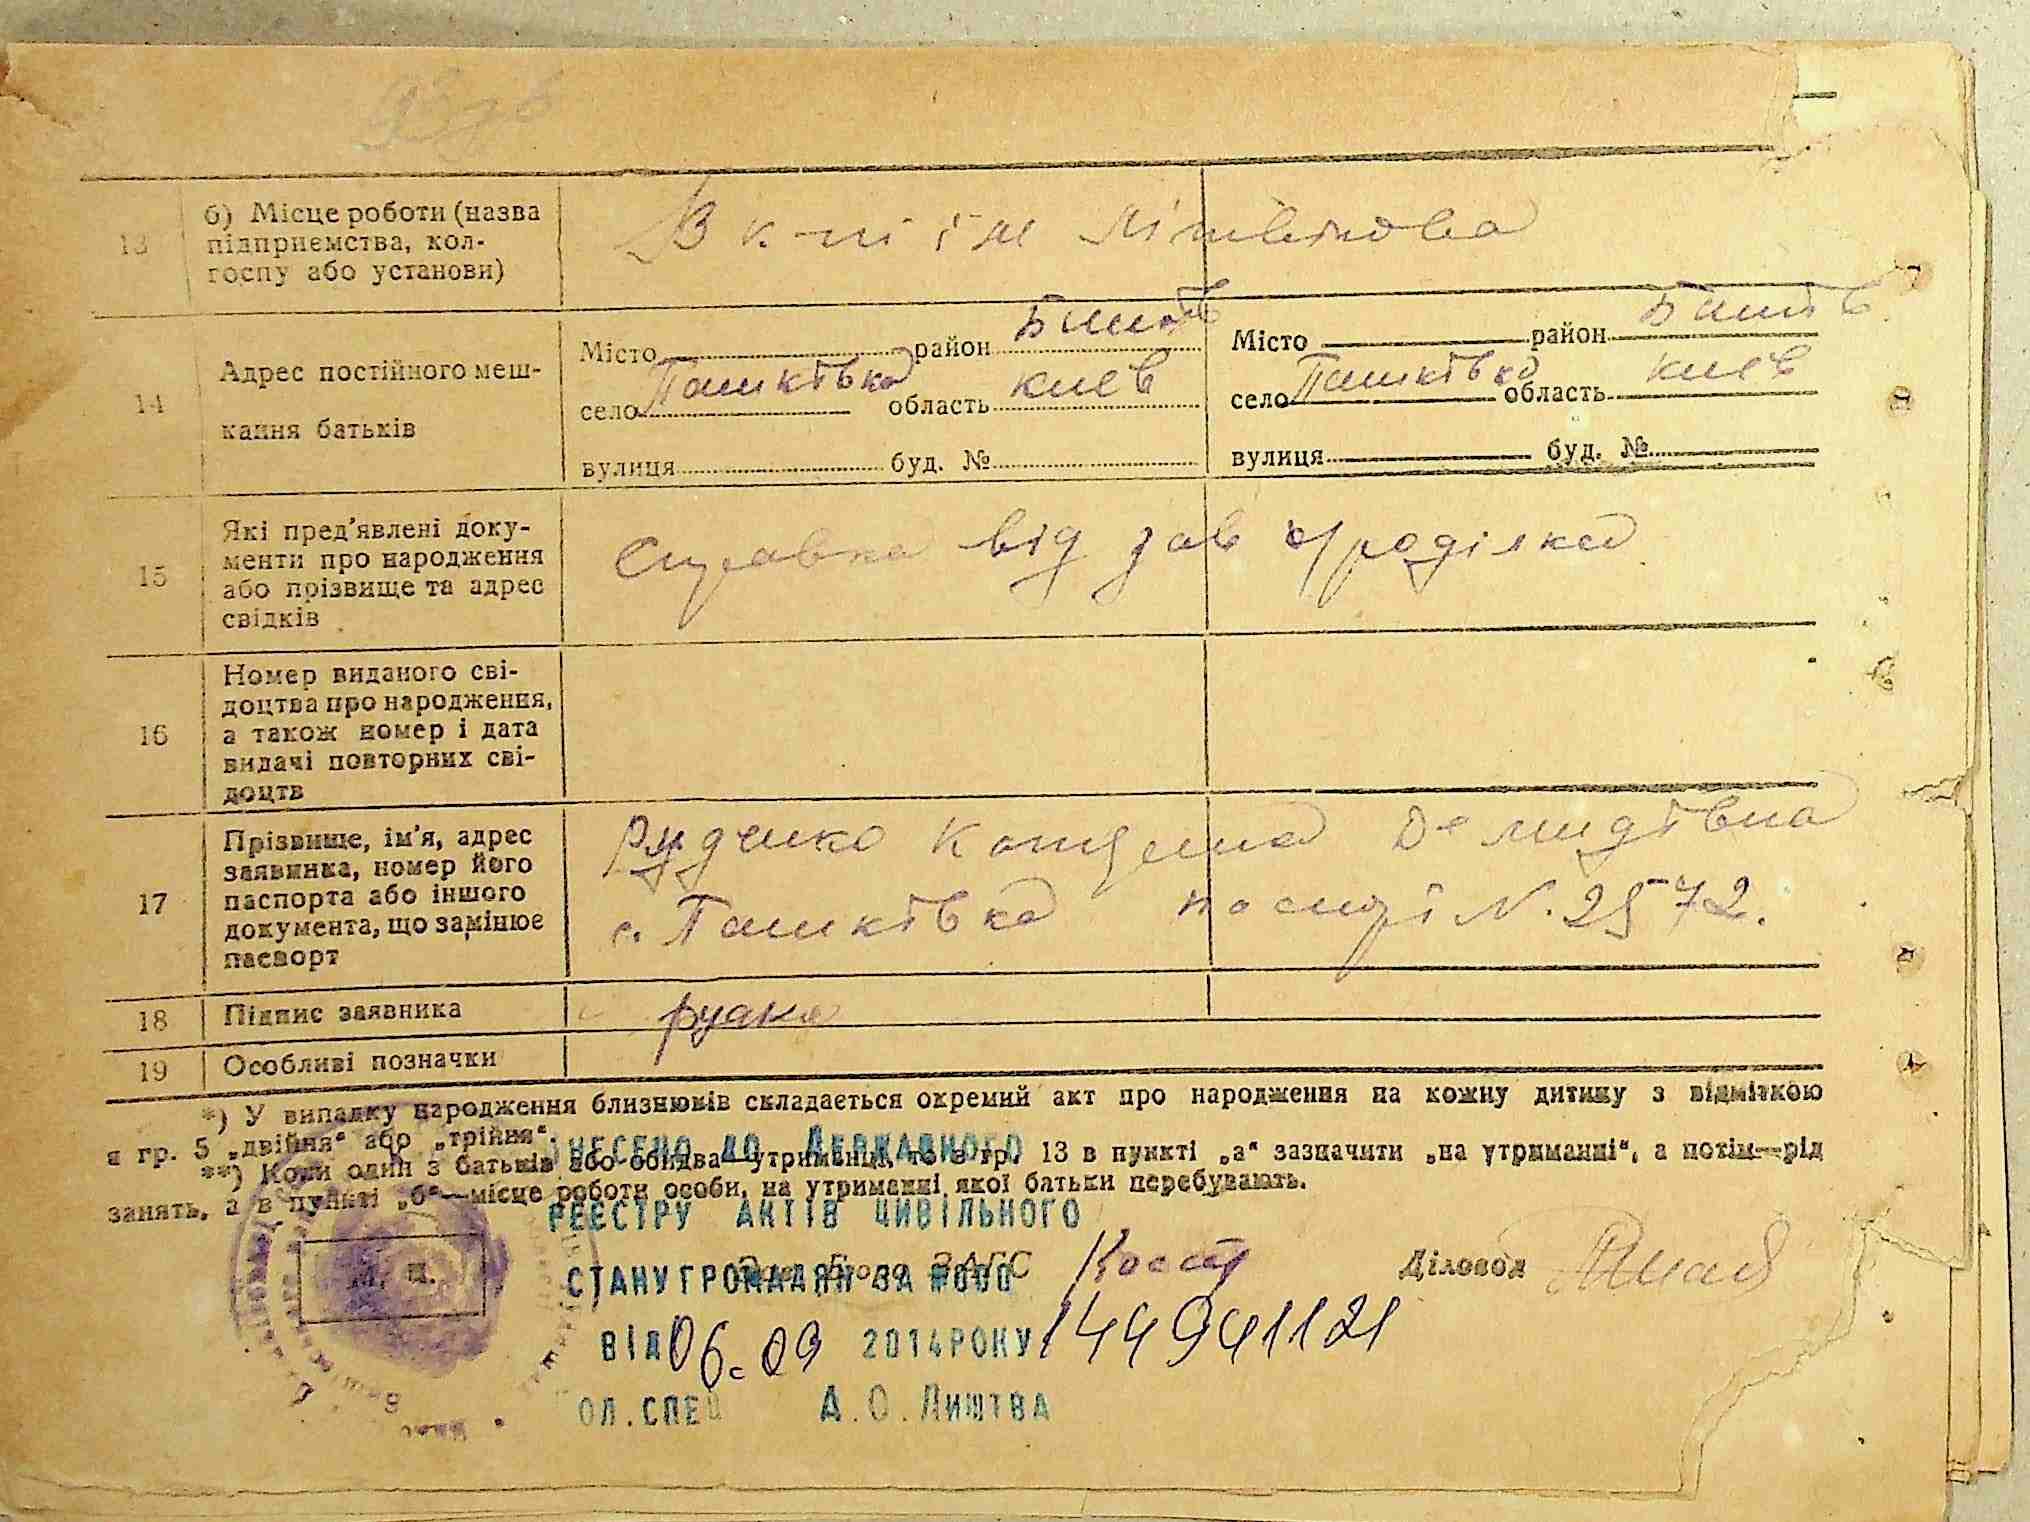 13
б) Місце роботи (назва
підприємства, кол-
госпу або установи)
В к-пі ім Літвінова
14
Адрес постійного меш-
кання батьків
Місто район Бишів
село Пашківка область Києв
вулиця буд. №
Місто район Бишів
село Пашківка область Києв
вулиця буд. №
15
Які пред'явлені доку-
менти про народження
або прізвище та адрес
свідків
Справка від зав
16
Номер виданого сві-
доцтва про народження,
а також номер і дата
видачі повторних сві-
доцтв
17
Прізвище, ім'я, адрес
заявника, номер його
паспорта або іншого
документа, що замінює
паспорт
Рудченко Катерина Демидівна
с. Пашківка N. 2572.
18
Підпис заявника
19
Особливі позначки
*) У випадку народження близнюків складається окремий акт про народження на кожну дитину з відміткою
в гр. 5 „двійня“ або „трійня“.
**) Коли один з батьків або обидва—утриманці, то в гр. 13 в пункті „а“ зазначити „на утриманні“, а потім—рід
занять, а в пункті „б“—місце роботи особи, на утриманні якої батьки перебувають.
ВНЕСЕНО ДО ДЕРЖАВНОГО
РЕЄСТРУ АКТІВ ЦИВІЛЬНОГО
СТАНУ ГРОМАДЯН ЗА №000
ВІД 06.09 2014 РОКУ 144941121
ОЛ. СПЕЦ А.О. ЛИШТВА
М. П.
Зав. Бюро ЗАГС
Діловод